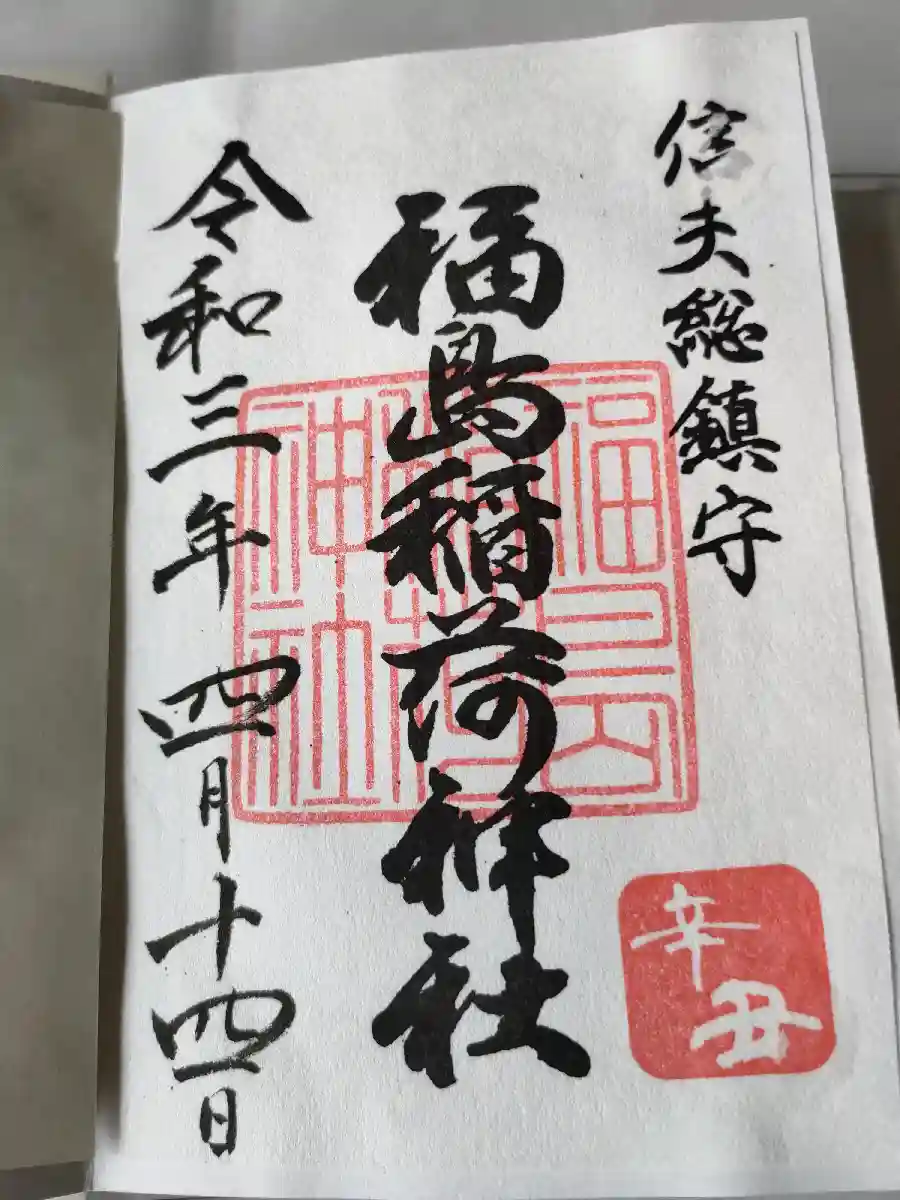 信夫総鎮守
福島稲荷神社
令和三年四月十四日
福島稲荷神社
辛丑